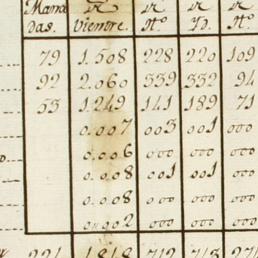 Mana das. R Vientre. R Hº. R Yd. R Hº.
79 1.508 228 220 109
92 2.060 339 332 94
53 1.249 141 189 71
0.007 003 001 000
0.006 000 000 000
0.008 001 001 000
0.008 000 000 000
0.002 000 000 000
224 1818 712 743